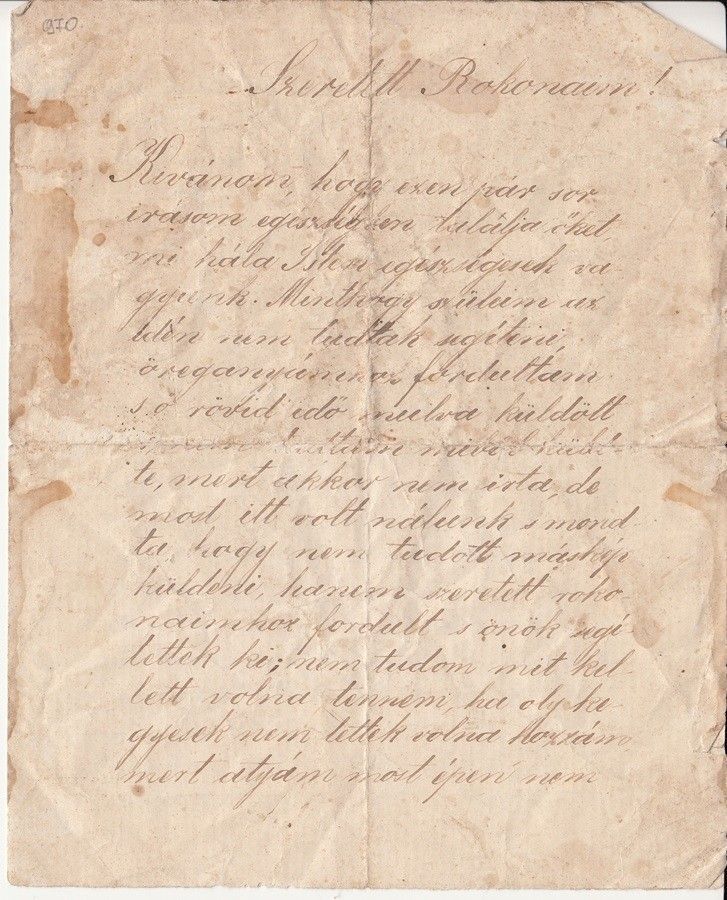 970.
Szeretett Rokonaim!
Kivánom, hogy ezen pár sor
irásom egészségben találja őket,
mi hála Isten egészségesek va-
gyunk. Minthogy szüleim az
idén nem tudtak segiteni,
öreganyámhoz fordultam
s ő rövid idő mulva küldött
küld-
te, mert akkor nem irta, de
most itt volt nálunk s mond-
ta, hogy nem tudott máskép
küldeni, hanem szeretett roko-
naimhoz fordult s önök segi-
tettek ki; nem tudom mit kel-
lett volna tennem, ha oly ke-
gyesek nem lettek volna hozzám
mert atyám most épen nem